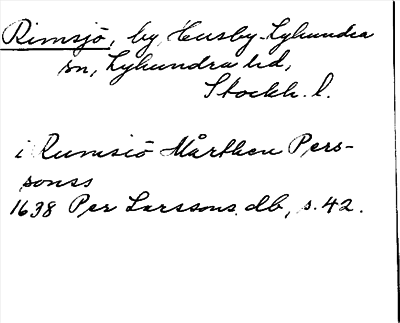 Rimsjö, by, Husby-Lyhundra
sn, Lyhundra hd,
Stockh. l.
i Rumsiö Mårthen Pers-
sonss
1638 Per Larssons db, s. 42.